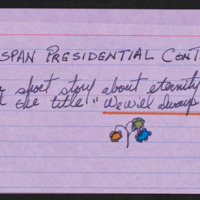 SPAN PRESIDENTIAL CONT
short story about eternity
the title "We Will always